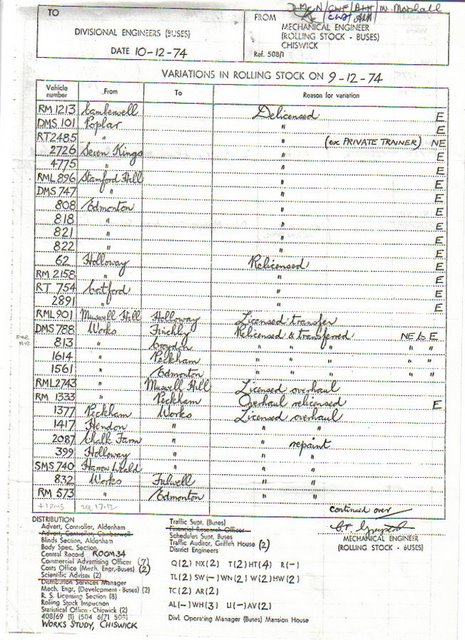 J.McN/GWF/
W. Marshall
TO
DIVISIONAL ENGINEERS (BUSES)
DATE 10-12-74
FROM
MECHANICAL ENGINEER
(ROLLING STOCK - BUSES)
CHISWICK
Ref. 508/1
VARIATIONS IN ROLLING STOCK ON 9-12-74
Vehicle number From To Reason for variation
RM 1213 Camberwell Delicensed E
DMS 101 Poplar " E
RT2485 " " (ex PRIVATE TRAINER) NE
2726 Seven Kings " E
4775 " " E
RML 896 Stamford Hill " E
DMS 747 " " E
808 Edmonton " E
818 " " E
821 " " E
822 " " E
62 Holloway Relicensed E
RM 2158 " " E
RT 754 Catford " E
2891 " " E
RML901 Muswell Hill Holloway Licensed transfer
DMS 788 Works Finchley Relicensed & transferred NE to E
813 " Croydon " " " " "
1614 " Peckham " " " " "
1561 " Edmonton " " " " "
RML2743 Muswell Hill Licensed overhaul
RM 1333 Peckham Overhaul relicensed E
1377 Peckham Works Licensed overhaul
1417 Hendon " " "
2087 Chalk Farm " " repaint
399 Holloway " " "
SMS 740 Harrow Weald " " "
832 Works Fulwell " "
RM 573 " Edmonton " "
continued over
DISTRIBUTION
Advert, Controller, Aldenham
Advert, Controller, Camberwell
Blinds Section, Aldenham
Body Spec. Section
Central Record ROOM 34
Commercial Advertising Officer (7)
Costs Office (Mech. Engr.-Buses) (2)
Scientific Adviser (2)
Distribution Services Manager
Mech. Engr, (Development - Buses) (2)
R. S. Licensing Section (8)
Rolling Stock Inspection
Statistical Office - Chiswick (2)
WORKS STUDY, CHISWICK
Traffic Supt. (Buses)
Financial Research Officer
Schedules Supt, Buses
Traffic Auditor, Griffith House (2)
District Engineers
Q(2) NX(2) T(2) HT(4) R(-)
TL(2) SW(-) WN(2) W(2) HW(2)
TC(2) AR(2)
AL(-) WH(3) U(-) AV(2)
Divl. Operating Manager (Buses) Mansion House
MECHANICAL ENGINEER
(ROLLING STOCK - BUSES)